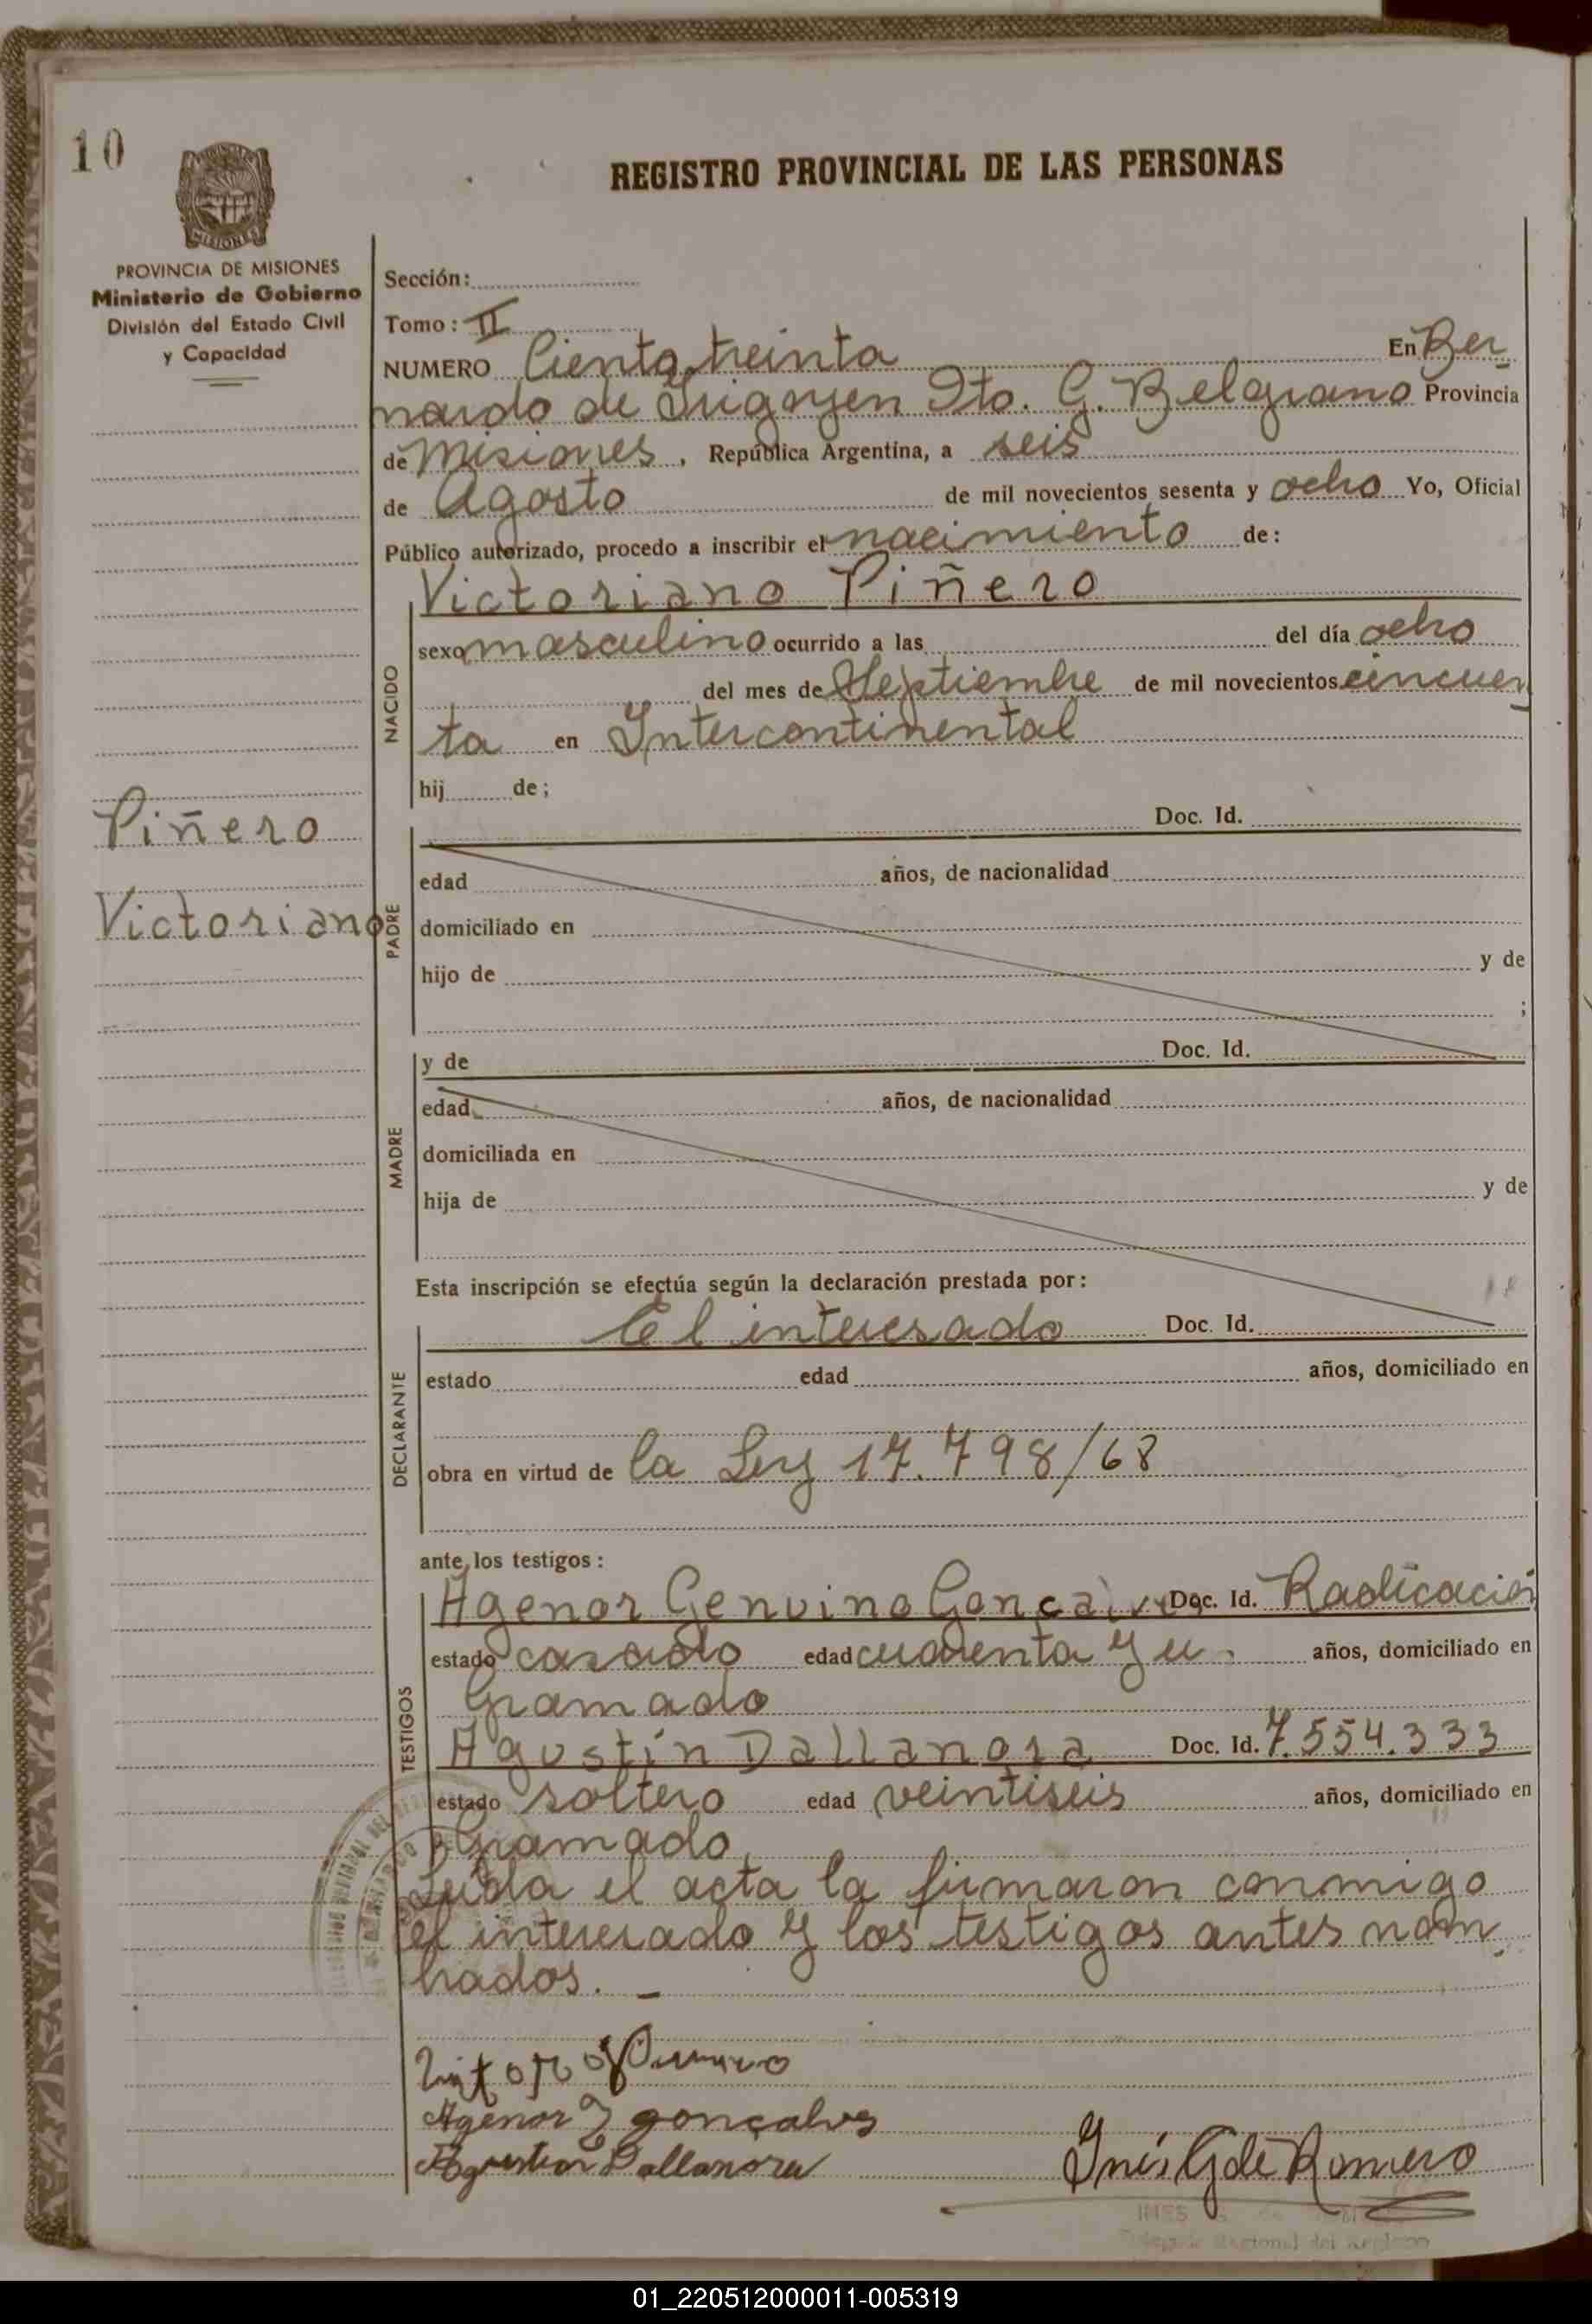 10
MISIONES
PROVINCIA DE MISIONES
Ministerio de Gobierno
División del Estado Civil
y Capacidad
REGISTRO PROVINCIAL DE LAS PERSONAS
Sección:
Tomo: II
NUMERO Ciento treinta En Ber
nardo de Irigoyen Dto. G. Belgrano Provincia
de Misiones, República Argentina, a seis
de Agosto de mil novecientos sesenta y ocho Yo, Oficial
Público autorizado, procedo a inscribir el nacimiento de:
Victoriano Piñero
NACIDO
sexo masculino ocurrido a las del día ocho
del mes de Septiembre de mil novecientos cincuen
ta en Intercontinental
hij de;
Piñero
Victoriano
PADRE
Doc. Id.
edad años, de nacionalidad
domiciliado en
hijo de y de
;
MADRE
y de Doc. Id.
edad años, de nacionalidad
domiciliada en
hija de y de
Esta inscripción se efectúa según la declaración prestada por:
DECLARANTE
El interesado Doc. Id.
estado edad años, domiciliado en
obra en virtud de la Ley 17.798/68
ante los testigos:
TESTIGOS
Agenor Genuino Gonçalves Doc. Id. Radicación
estado casado edad cuarenta y u años, domiciliado en
Gramado
Agustín Dallanora Doc. Id. 7.554.333
estado soltero edad veintiseis años, domiciliado en
Gramado
Leída el acta la firmaron conmigo
el interesado y los testigos antes nom
brados.
Agenor G gonçalves
Agustin Dallanora
Inés G de Romero
01_220512000011-005319